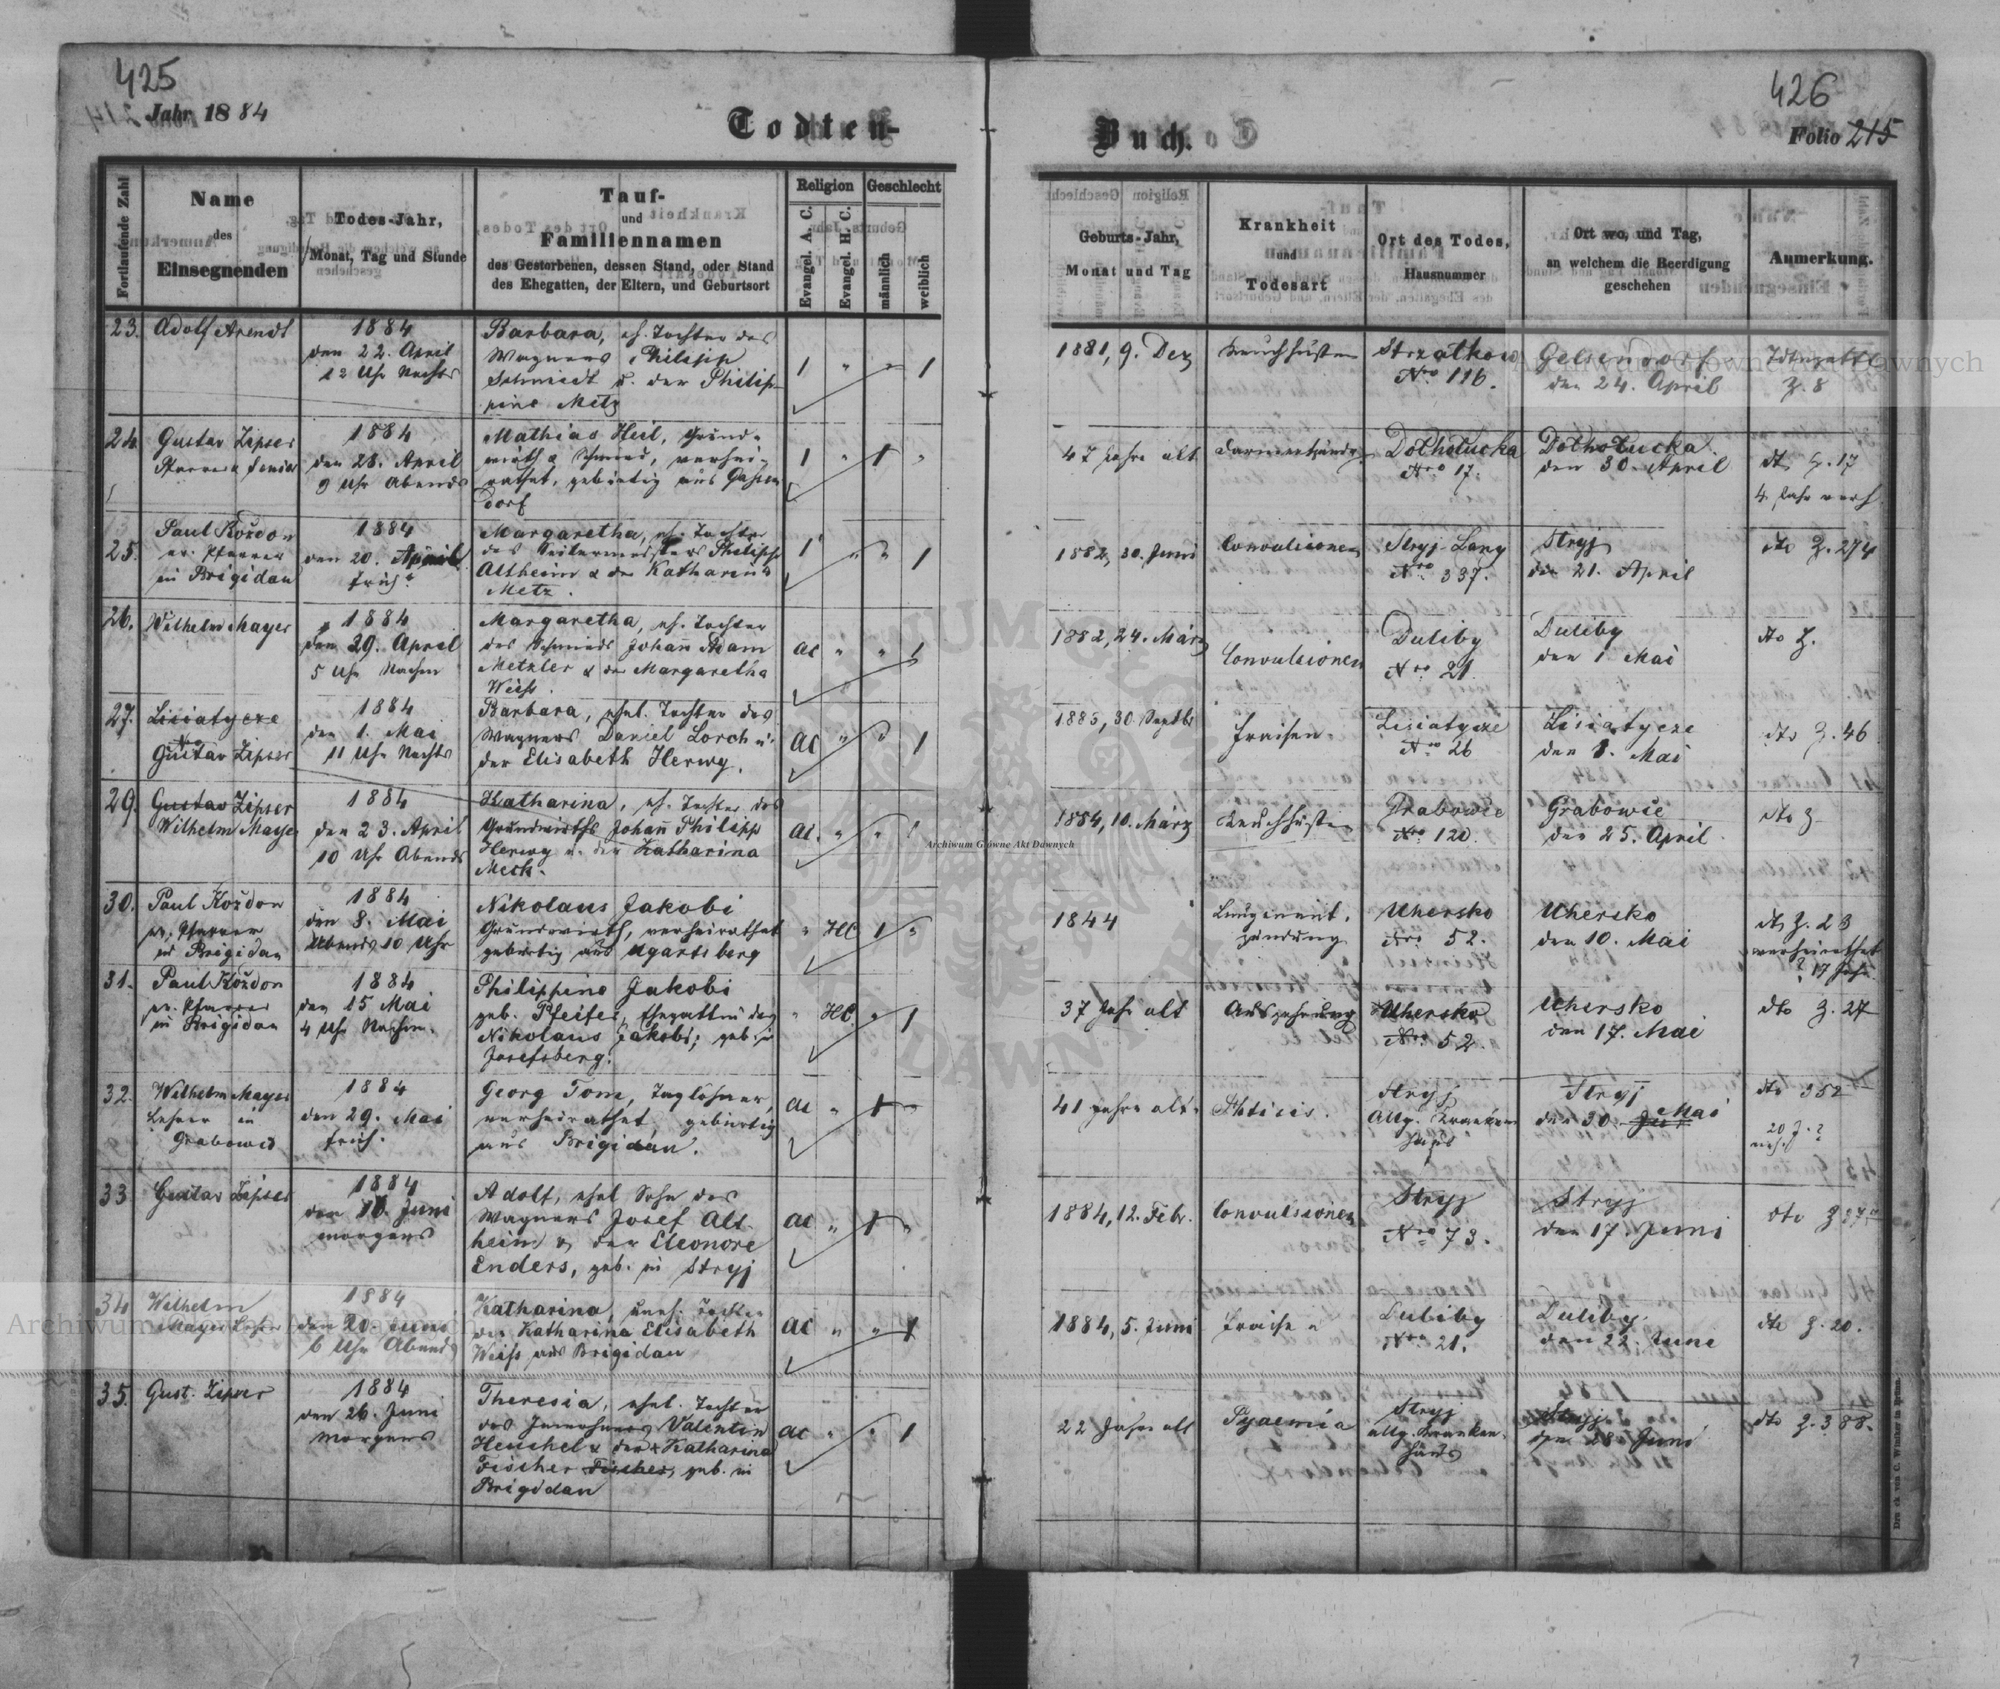 425
Jahr 1884
Todten-
Fortlaufende Zahl
Name
des
Einsegnenden
Todes-Jahr,
Monat, Tag und Stunde
Tauf-
und
Familiennamen
des Gestorbenen, dessen Stand, oder Stand
des Ehegatten, der Eltern, und Geburtsort
Religion
Evangel. A. C.
Evangel. H. C.
Geschlecht
männlich
weiblich
23. Adolf Arendt
1884
den 22. April
12 Uhr Nachts
Barbara, eh. Tochter des
Wagners Philipp
Schmiedt u. der Philip-
pine Metz
1 " " 1
24. Gustav Zipser
Pfarrer & Senior
1884
den 28. April
9 Uhr Abends
Mathias Heil, Grund-
wirth & Schmied, verhei-
rathet, gebürtig aus
dorf
1 " 1 "
25. Paul Kożdon
ev. Pfarrer
in Brigidau
1884
den 20. April
früh
Margaretha, eh. Tochter
des Philipp
Altheim & der Katharina
Metz.
1 " " 1
26. Wilhelm Mayer
1884
den 29. April
5 Uhr Nachm
Margaretha, eh. Tochter
des Schmieds Johañ Adam
Metzler & der Margaretha
Weiß.
ac " " 1
27. Lisiatycze
Gustav Zipser
1884
den 1. Mai
11 Uhr Nachts
Barbara, ehel. Tochter des
Wagners Daniel Lorch u.
der Elisabeth Herwy.
ac " " 1
29. Gustav Zipser
Wilhelm Mayer
1884
den 23. April
10 Uhr Abends
Katharina, eh. Tochter des
Grundwirths Johañ Philipp
Herwy u. der Katharina
Meck.
ac. " " 1
30. Paul Kożdon
ev. Pfarrer
in Brigidau
1884
den 8. Mai
Abends 10 Uhr
Nikolaus Jakobi
Grundwirth, verheirathet
gebürtig aus Ugartsberg
" HC 1 "
31. Paul Kożdon
ev. Pfarrer
in Brigidau
1884
den 15 Mai
4 Uhr Nachm.
Philippine Jakobi
geb. Pfeifer, Ehegattin des
Nikolaus Jakobi, geb. in
Josefsberg.
" HC " 1
32. Wilhelm Mayer
Lehrer in
Grabowce
1884
den 29. Mai
früh.
Georg Tom, Taglöhner,
verheirathet, gebürtig
aus Brigidau.
ac " 1 "
33 Gustav Zipser
1884
den 16. Juni
morgens
Adolf, ehel Sohn des
Wagners Josef Alt-
heim & der Eleonore
Enders, geb. in Stryj
ac " 1 "
34 Wilhelm
Mayer Lehrer
1884
den 20. Juni
6 Uhr Abends
Katharina, uneh. Tochter
der Katharina Elisabeth
Weiß aus Brigidau
ac " " 1
35. Gust. Zipser
1884
den 26. Juni
morgens
Theresia, ehel. Tochter
des Valentin
Heuchel & der Katharina
Fischer Fischer, geb. in
Brigidau
ac " " 1
426
Buch.
Folio 215
Geburts-Jahr,
Monat und Tag
Krankheit
und
Todesart
Ort des Todes,
Hausnummer
Ort wo, und Tag,
an welchem die Beerdigung
geschehen
Anmerkung.
1881, 9. Dez
Keuchhusten
Strzałkow
Nro 116.
Gelsendorf
den 24. April
Z. 8
47 Jahre alt
Dołhołucka
Nro 17.
Dołhołucka.
den 30. April
dto Z. 17
4 Jahr verh
1882, 30. Juni
Convulsionen
Stryj Lany
Nro 337.
Stryj
den 21. April
dto Z. 274
1882, 24. März
Convulsionen
Duliby
Nro 21
Duliby
den 1 Mai
dto Z.
1883, 30. Septbr
Fraisen
Lisiatycze
Nro 26
Lisiatycze
den 3. Mai
dto Z. 46
1854, 10. März
Keuchhusten
Grabowce
Nro 120.
Grabowce
den 25. April
dto Z
1844
Lungenent-
zündung
Uhersko
Nro 52.
Uhersko
den 10. Mai
dto Z. 23
verheirathet
? 17 Jahre
37 Jahr alt
Auszehrung
Uhersko
Nro 52.
Uhersko
den 17. Mai
dto Z. 27
41 Jahre alt
Phtisis.
Stryj
Allg. Kranken
haus
Stryj
den 30. Mai
dto 352
20 J. ?
verh
1884, 12. Febr.
Convulsionen
Stryj
Nro 73.
Stryj
den 17. Juni
dto Z
1884, 5. Juni
Fraisen
Duliby
Nro 21.
Duliby.
den 22. Juni
dto Z. 20.
22 Jahre alt
Pyaemia
Stryj
allg. Kranken-
haus
Stryj
den 28. Juni
dto Z. 388.
Archiwum Główne Akt Dawnych
Druck von C. Winiker in Brünn.